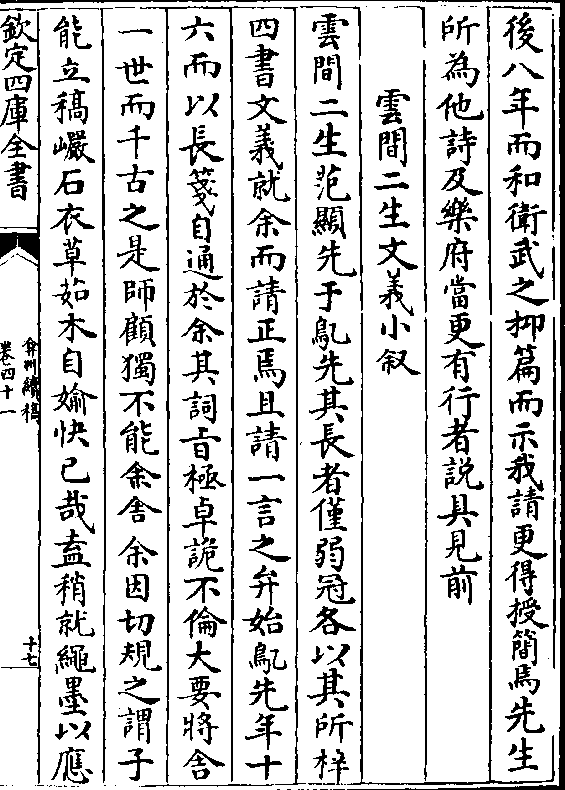 後八年而和衛武之抑篇而示我請更得授簡焉先生
所為他詩及樂府當更有行者說具見前
雲間二生文義小叙
雲間二生范顯先于鳬先其長者僅弱冠各以其所梓
四書文義就余而請正焉且請一言之弁始鳬先年十
六而以長箋自通於余其詞旨極卓詭不倫大要將舍
一世而千古之是師顧獨不能余舍余因切規之謂子
能立稿巖石衣草茹木自媮快已哉盍稍就繩墨以應
欽定四庫全書
弇州續稿
卷四十一
十七